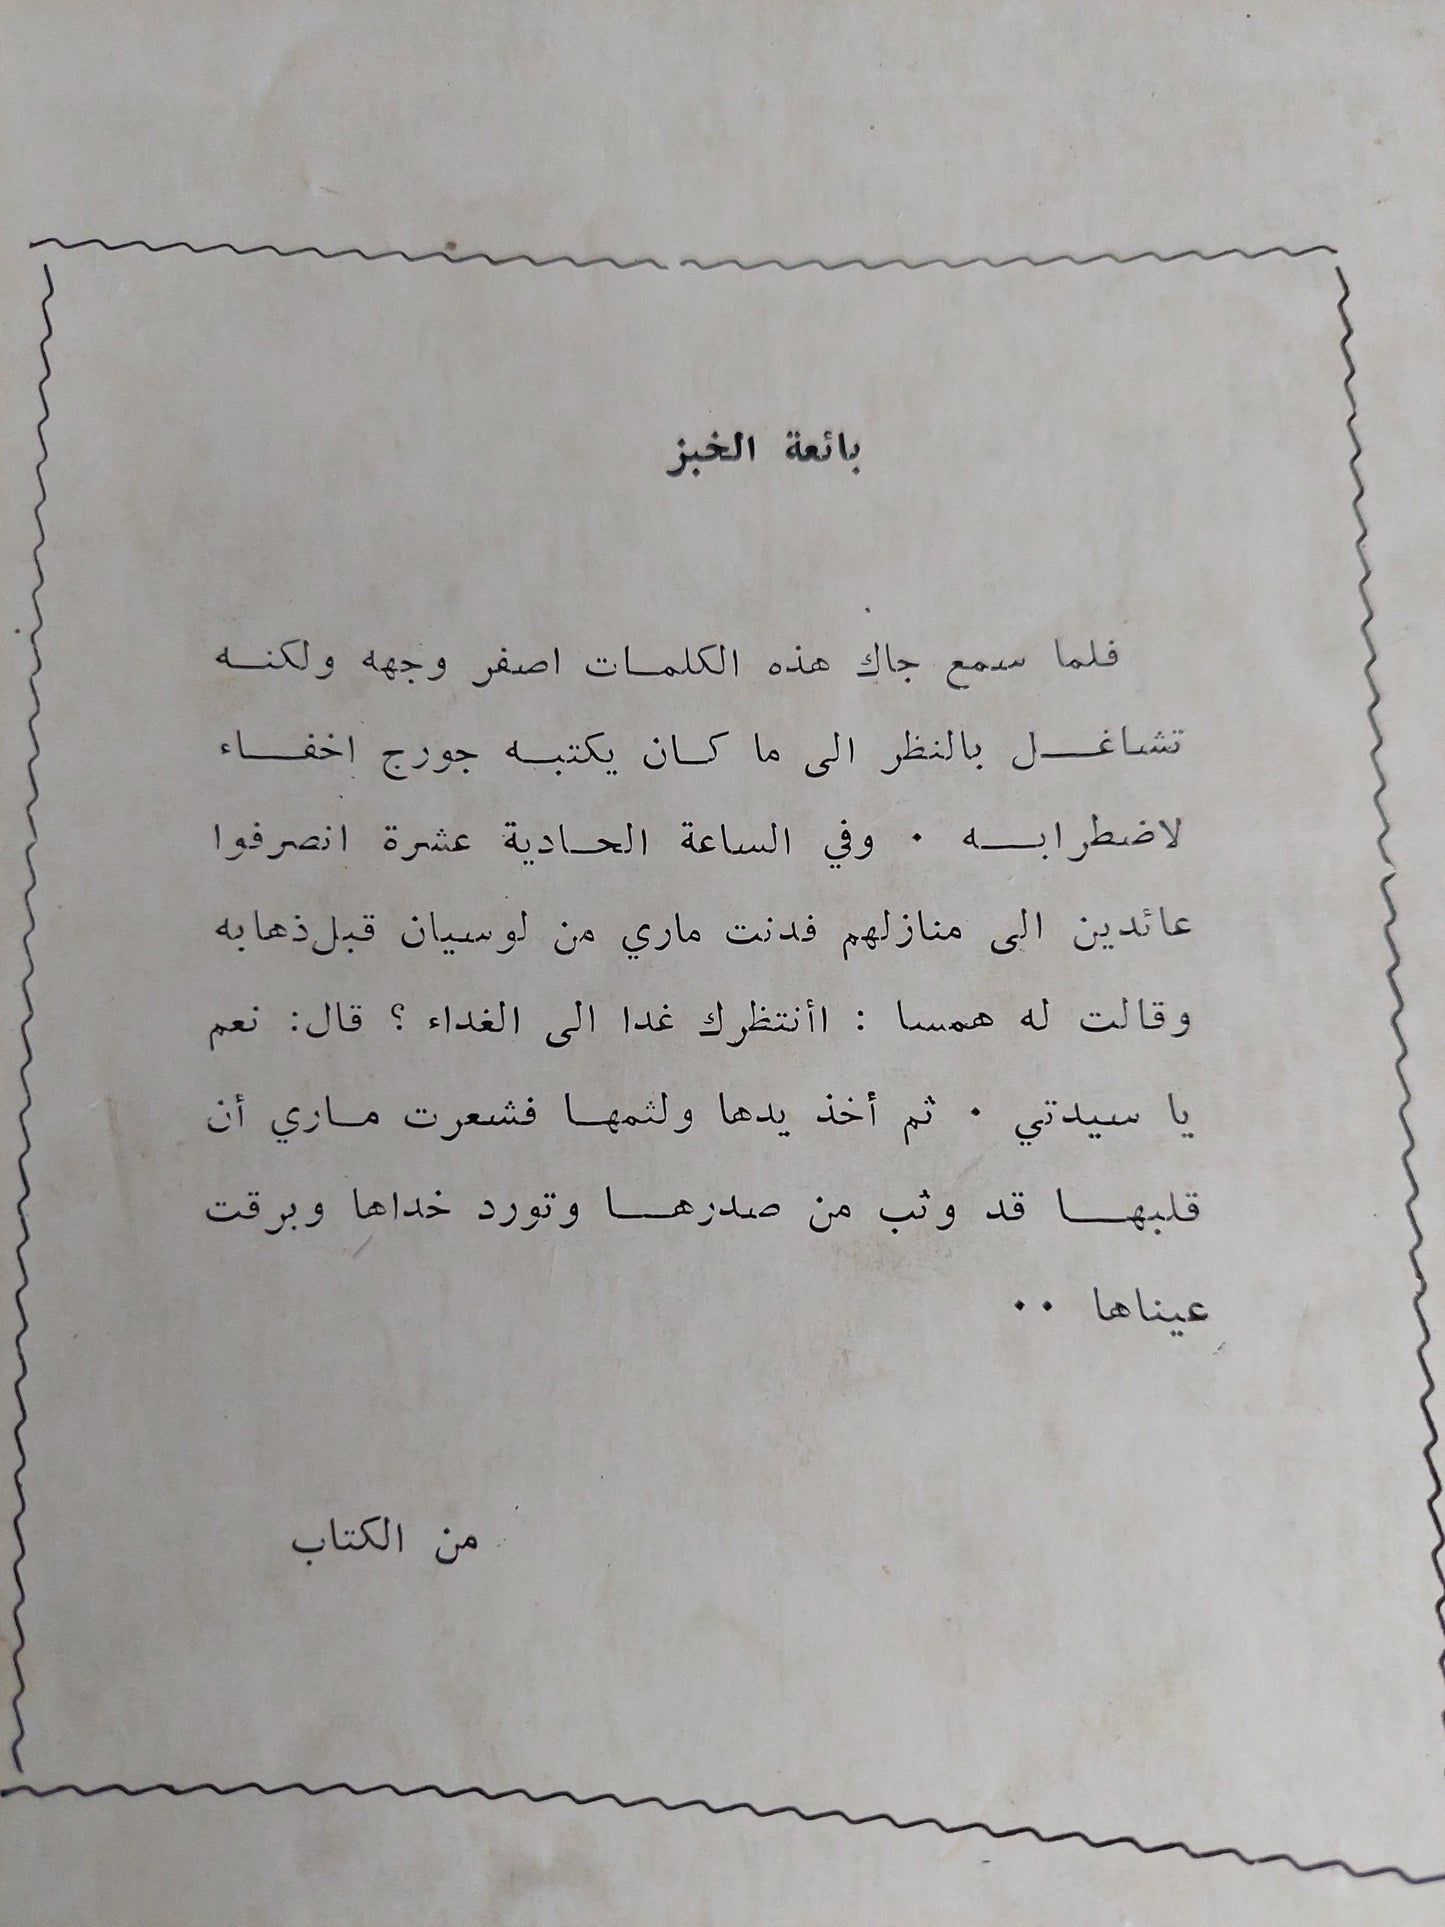 بائعة الخبز
فلما سمع جاك هذه الكلمـات اصفر وجهه ولكنـه
تشاغـل بالنظر الى ما كـان يكتبـه جورج اخفـاء
لاضطرابـه . وفي الساعة الحـادية عشرة انصرفوا
عائدين الى منازلهم فدنت ماري من لوسيان قبل ذهابه
وقالت له همسا : اأنتظرك غدا الى الغداء ؟ قال: نعم
يا سيدتي . ثم أخذ يدها ولثمهـا فشعرت مـاري أن
قلبهـا قد وثب من صدرهـا وتورد خداها وبرقت
عيناها ..
من الكتاب